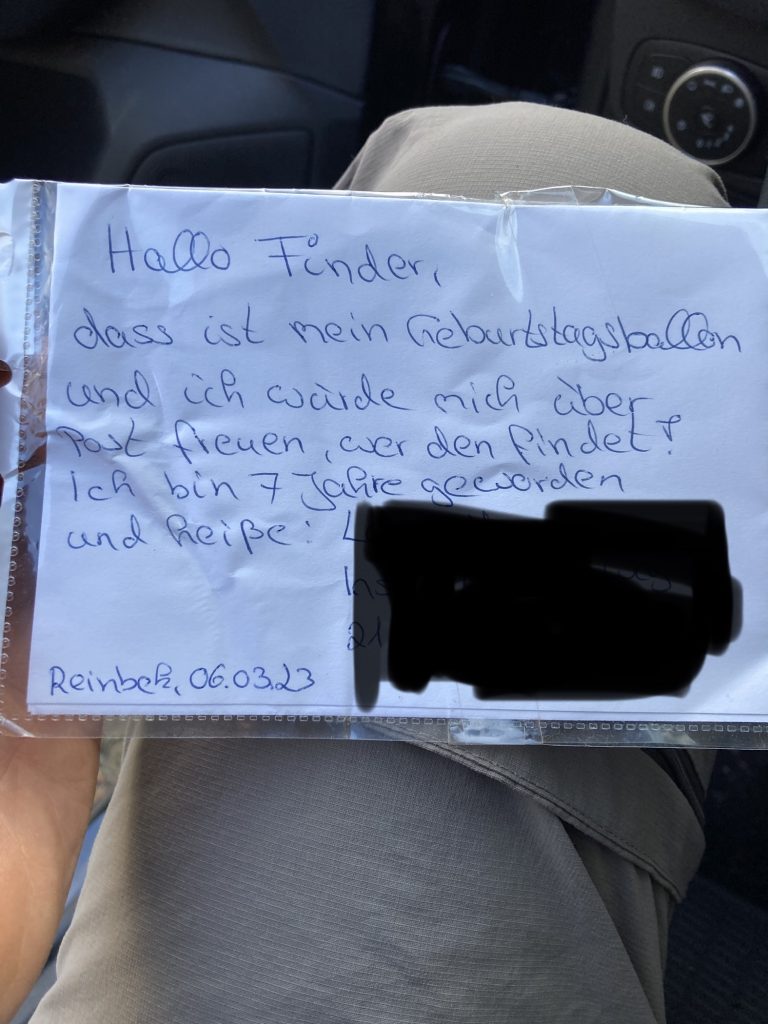 Hallo Finder,
dass ist mein Geburtstagsballon
und ich würde mich über
Post freuen, wer den findet!
Ich bin 7 Jahre geworden
und heiße: L
Ins
21
Reinbek, 06.03.23